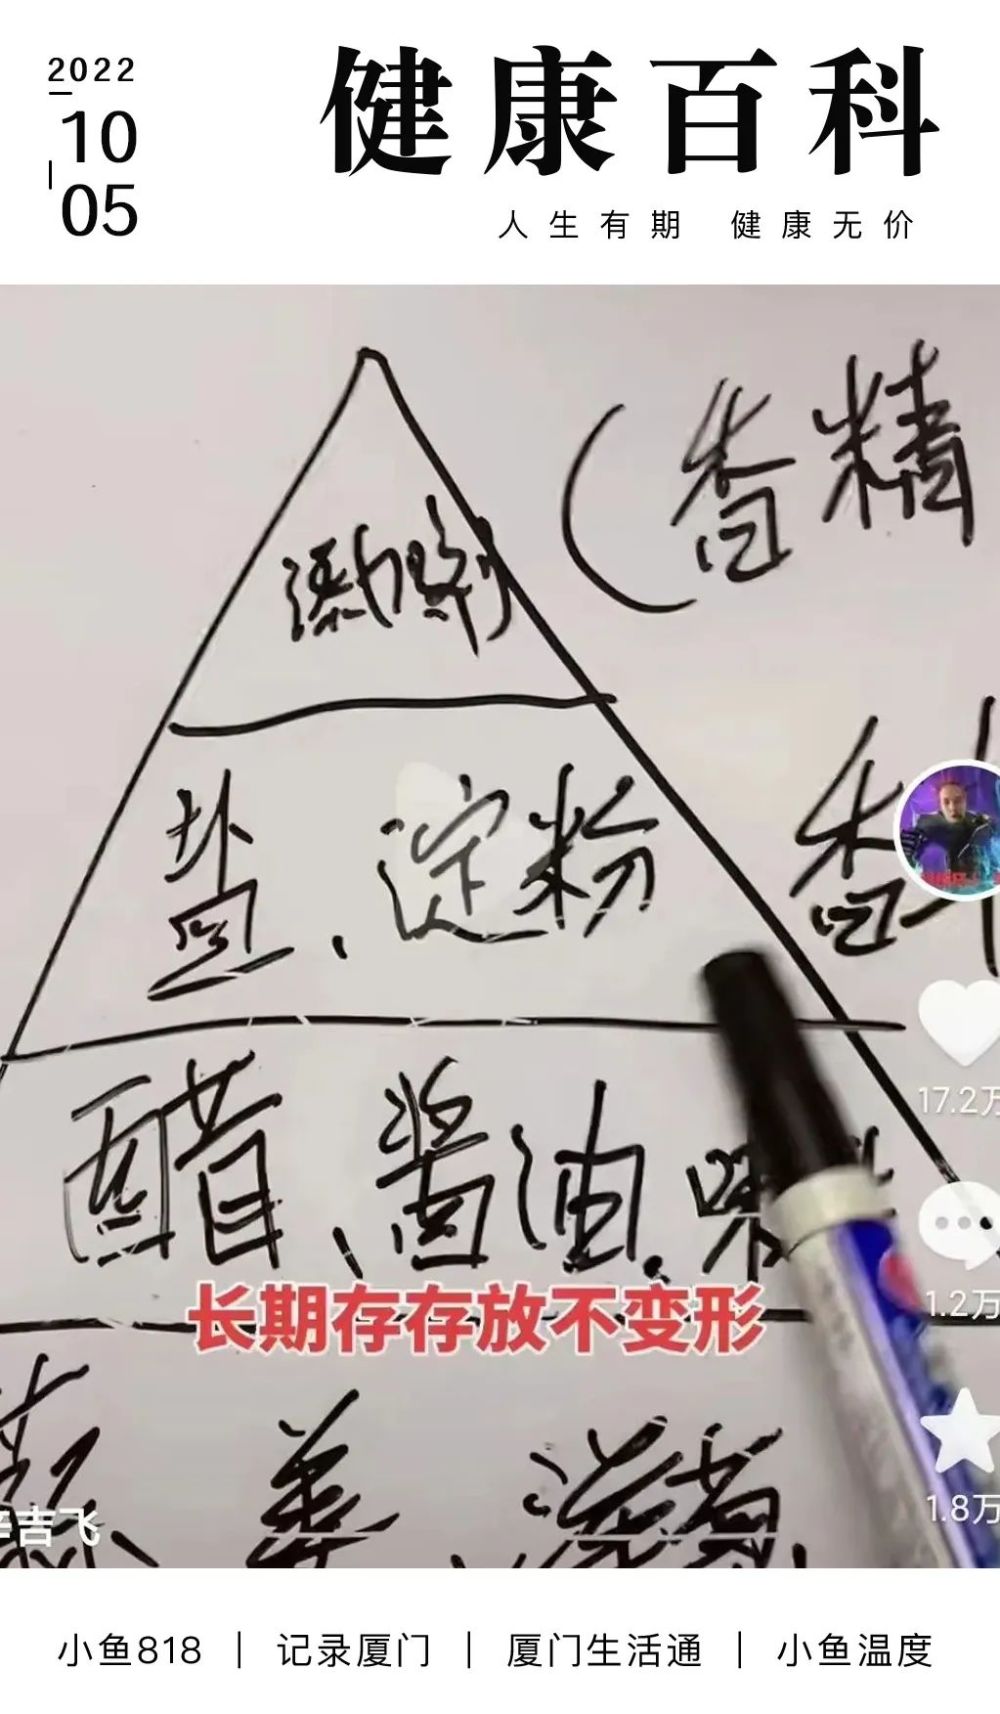 2022
10
05
健康百科
人生有期 健康无价
(香精
添加剂
香
盐、淀粉
醋、酱油、味
长期存存放不变形
蒜 姜
辛吉飞
17.2万
1.2万
1.8万
小鱼818 | 记录厦门 | 厦门生活通 | 小鱼温度